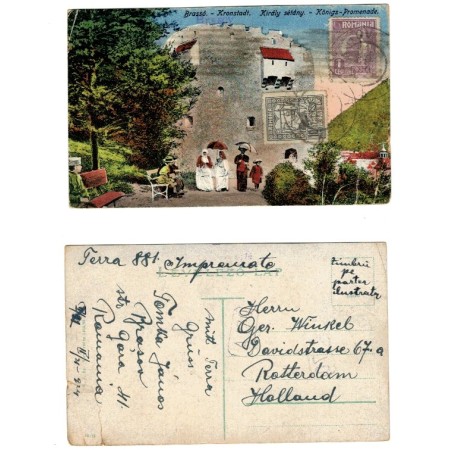 Brassó. - Kronstadt. Király sétány. - Königs-Promenade.
ROMANIA
Terra 881.
Imprimate
LEVELEZŐ-LAP
timbru
pe
partea
ilustrata
mit Terra
Gruss
Tomka János
Brasov
str Gara 41.
Romania
Herrn
Ger. Winkel
Davidstrasse 67.a
Rotterdam
Holland